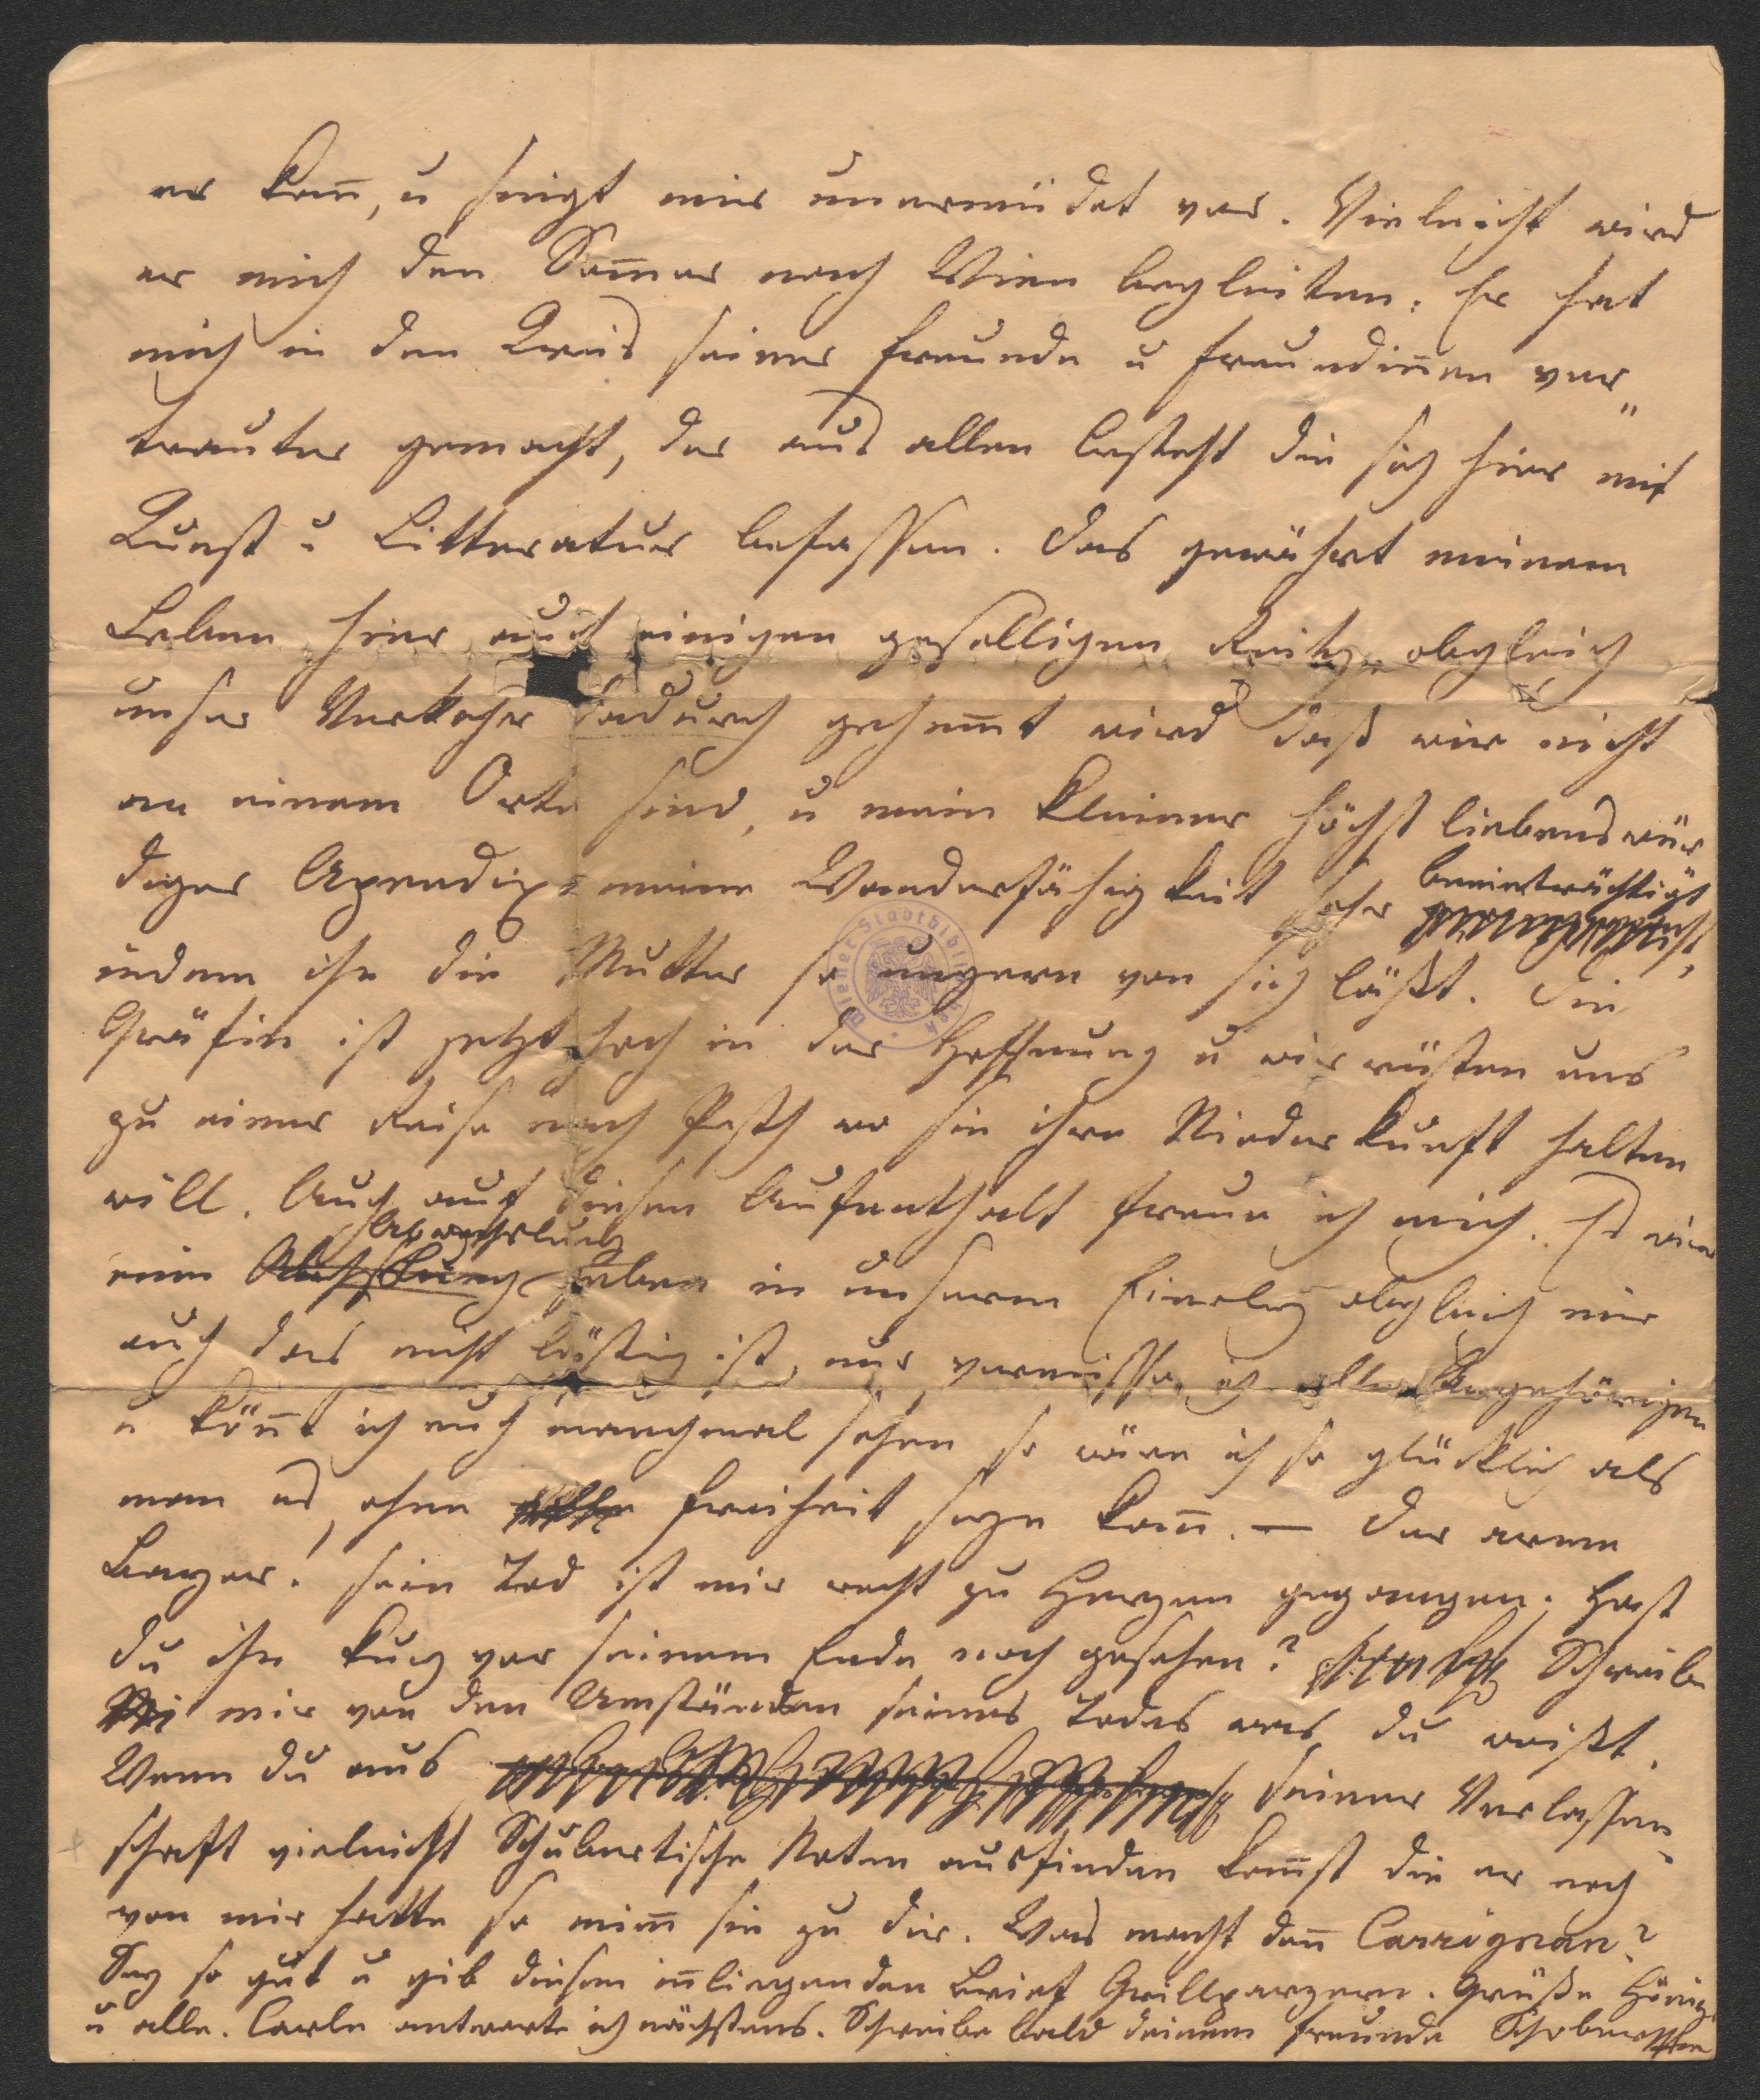 er kann, u singt mir unermüdet vor. Vieleicht wird
er mich den Sommer nach Wien begleiten. Er hat
mich in den Kreis seiner Freunde u Freundinnen ver„
trauter gemacht, der aus allen besteht die sich hier mit
Kunst u Litteratur befassen. Das gewährt meinem
Leben hier auch einigen geselligen Reitz, obgleich
unser Verkehr dadurch gehemmt wird daß wir nicht
an einem Orte sind, u mein kleiner höchst liebenswür
diger Apendix meine Wanderfähigkeit sehr beeinträchtigt
indem ihn die Mutter so ungern von sich läßt. Die
Gräfin ist jetzt hoch in der Hoffnung u wir rüsten uns
zu einer Reise nach Pesth wo sie ihre Niederkunft halten
will. Auch auf diesen Aufenthalt freue ich mich. Es wird
eine Abwechslung geben in unserm Einerley obgleich mir
auch das nicht lästig ist, nur vermisse ich alle Angehörigen
u könnt ich euch manchmal sehen so wäre ich so glücklich als
man es, ohne Freiheit seyn kann. — Der arme
Bayer! sein Tod ist mir recht zu Herzen gegangen. Hast
du ihn kurz vor seinem Ende noch gesehen? Schreibe
mir von den Umständen seines Todes was du weißt.
Wenn du aus seiner Verlassen„
schaft vieleicht Schubertische Noten ausfinden kannst die er noch
von mir hatte so nimm sie zu dir. Was macht denn Carrignan?
Sey so gut u gib diesen innliegenden Brief Grillparzern. Grüße Hönig
u alle. Carln antworte ich nächstens. Schreibe bald deinem Freunde Schober
Wiener Stadtbibliothek